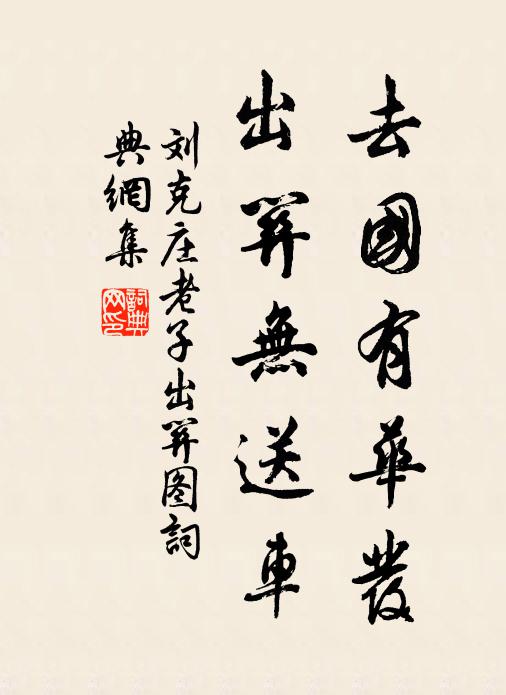 去國有華發
出關無送車
刘克庄老子出關图詞
典網集
詞典
网印